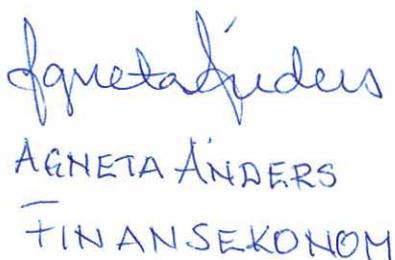 Agneta Änders
AGNETA ÄNDERS
FINANSEKONOM